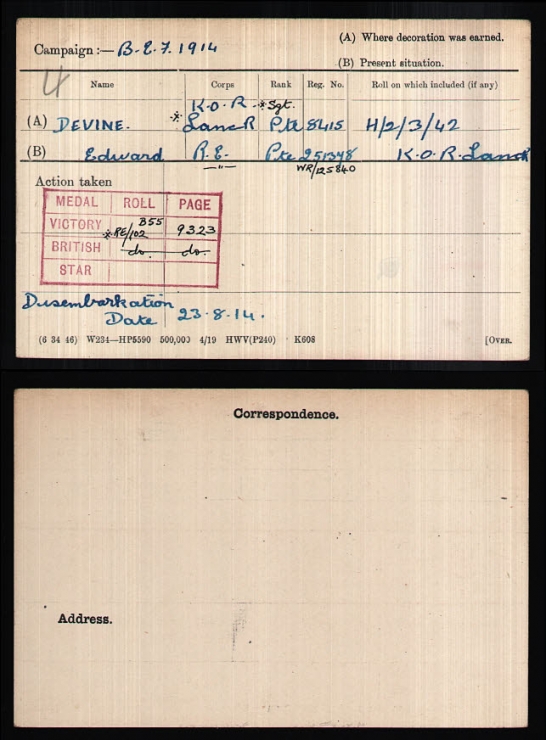 (A) Where decoration was earned.
Campaign :— B.E.F. 1914
(B) Present situation.
4
Name Corps Rank Reg. No. Roll on which included (if any)
K.O.R. * Sgt.
(A) DEVINE. * Lanc R Pte 8415 H/2/3/42
(B) Edward R.E. Pte 251348 K.O.R. Lanc R
—"— WR/125840
Action taken
MEDAL ROLL PAGE
VICTORY * RE/102 B55 9323
BRITISH do. do.
STAR
Disembarkation
Date 23.8.14.
(6 34 46) W234—HP5590 500,000 4/19 HWV(P240) K608 [OVER.
Correspondence.
Address.